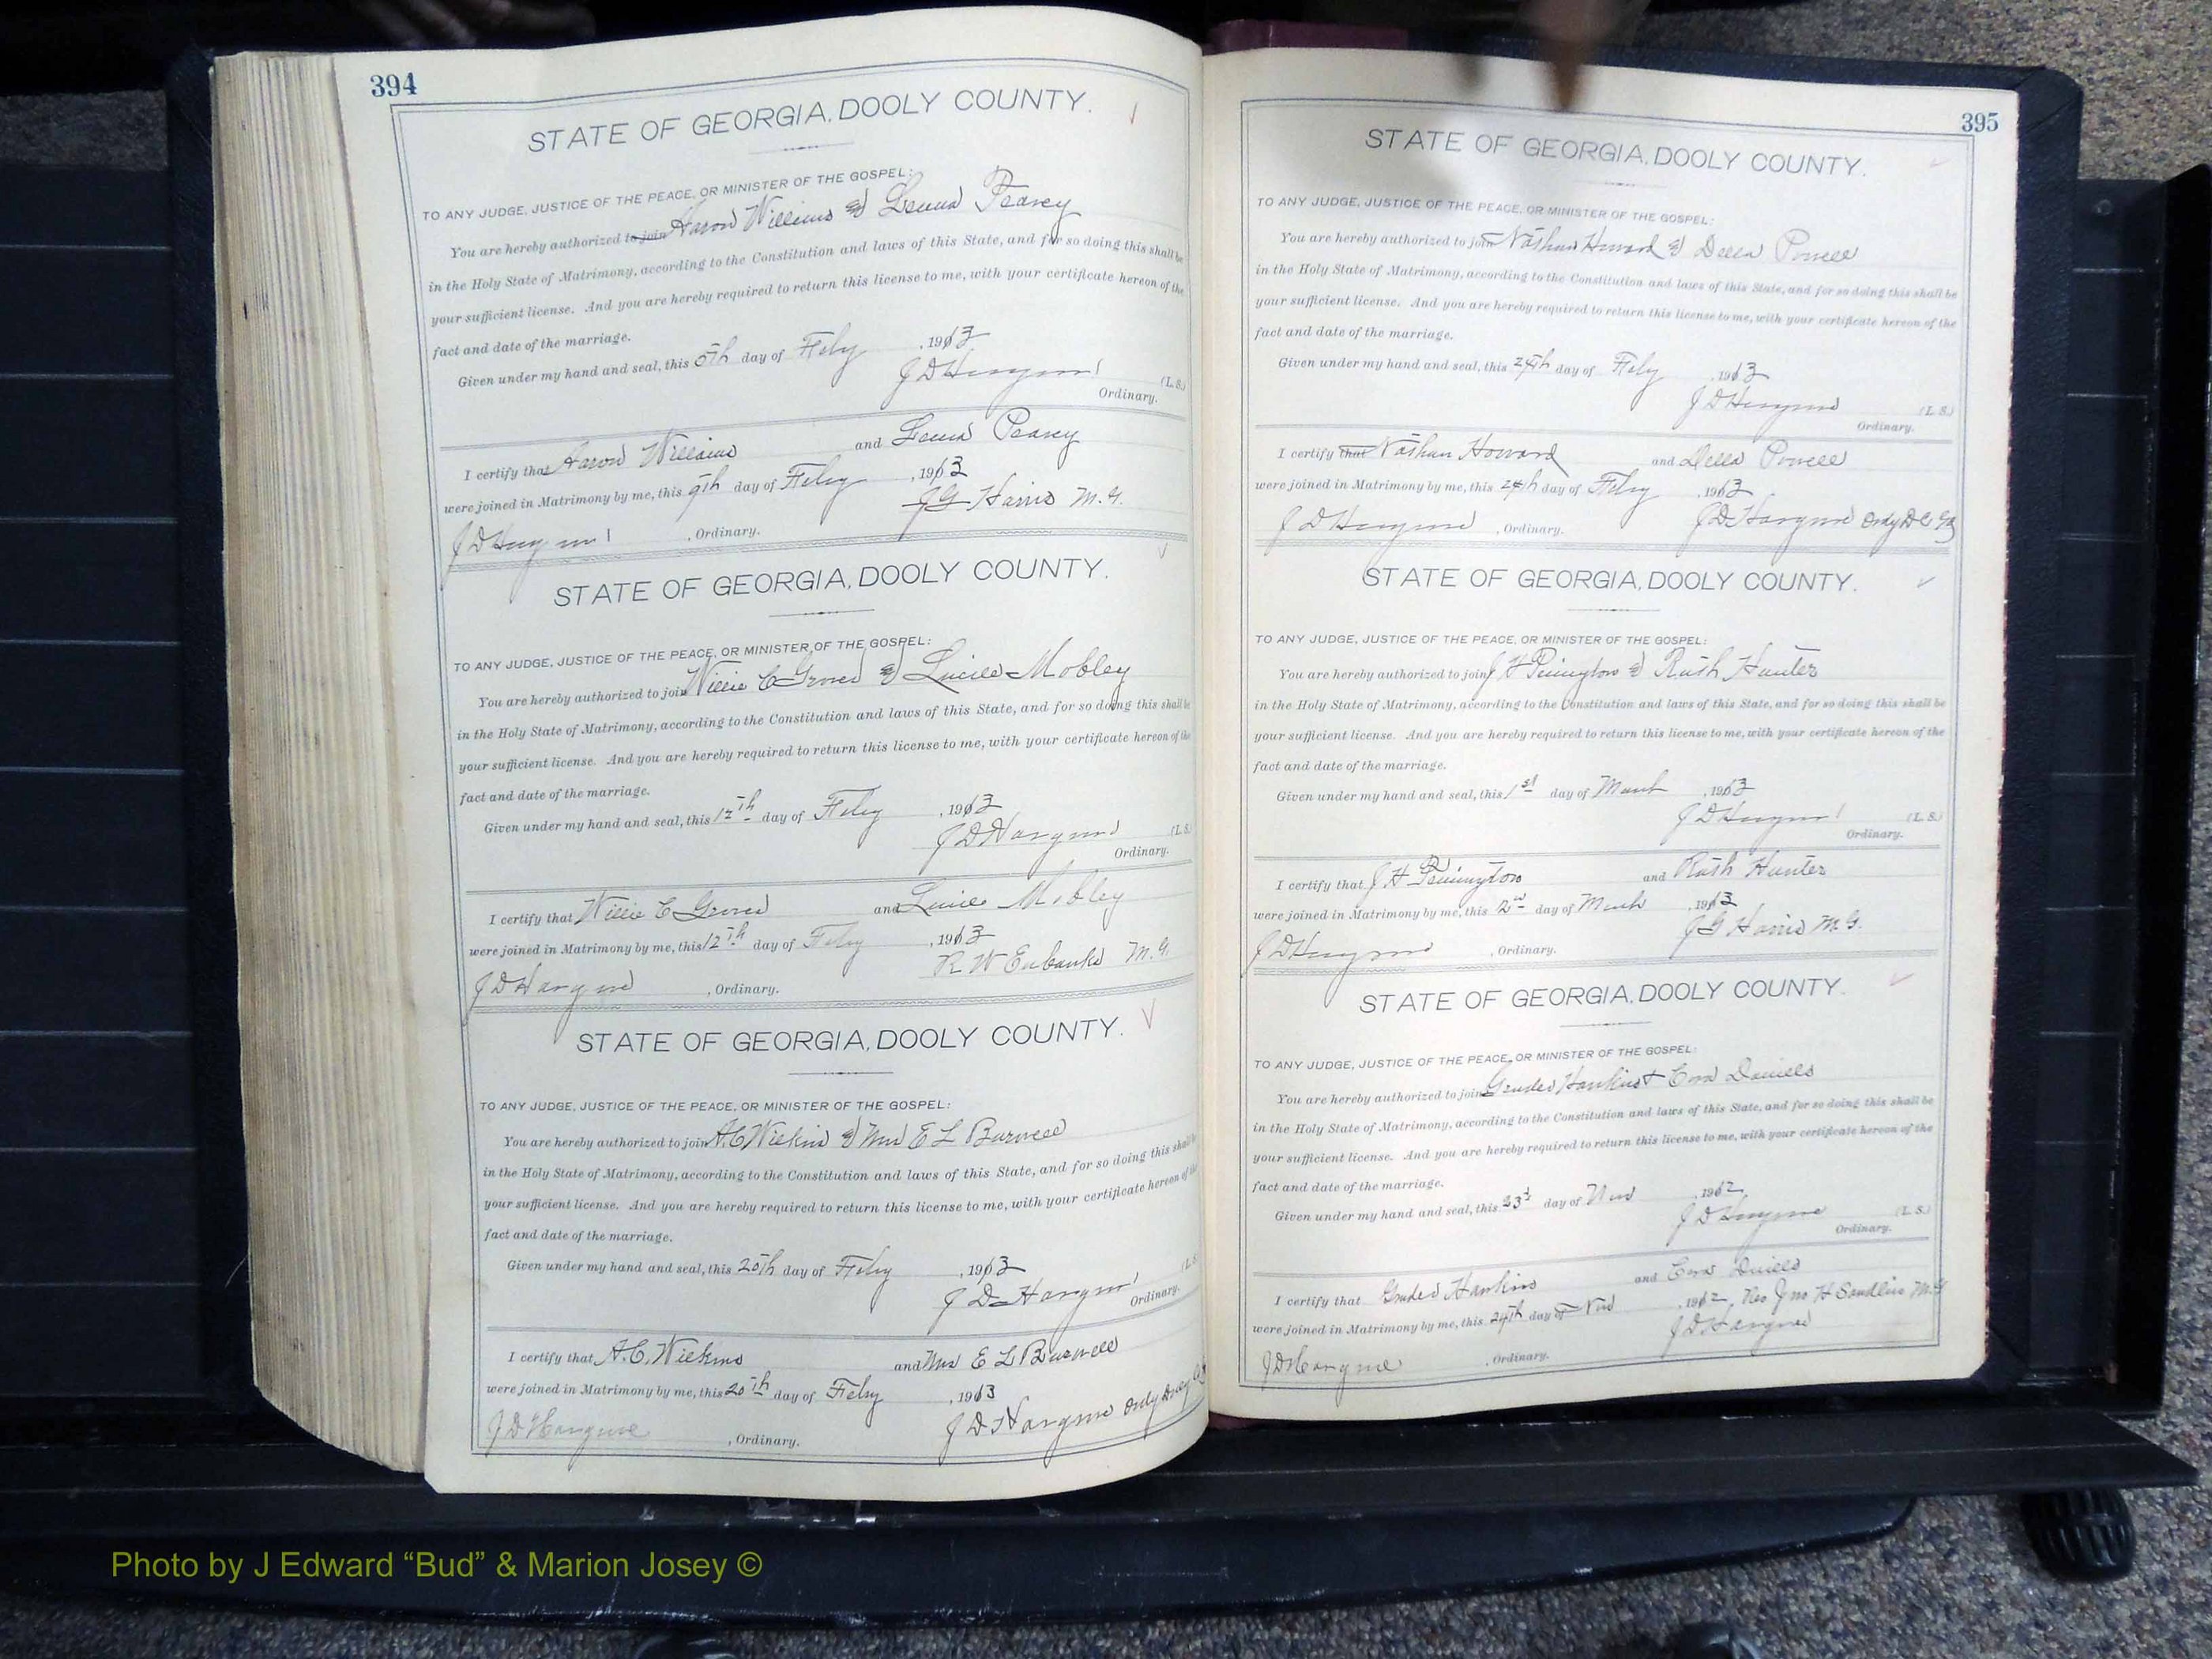 394
STATE OF GEORGIA, DOOLY COUNTY.
TO ANY JUDGE, JUSTICE OF THE PEACE, OR MINISTER OF THE GOSPEL:
You are hereby authorized to join Aaron Williams & Leuna Pearcy
in the Holy State of Matrimony, according to the Constitution and laws of this State, and for so doing this shall be
your sufficient license. And you are hereby required to return this license to me, with your certificate hereon of the
fact and date of the marriage.
Given under my hand and seal, this 5th day of Feby , 1913
J D Hargrove (L. S.)
Ordinary.
I certify that Aaron Williams and Leuna Pearcy
were joined in Matrimony by me, this 9th day of Feby , 1913
J G Harris M. G.
J D Hargrove , Ordinary.
STATE OF GEORGIA, DOOLY COUNTY.
TO ANY JUDGE, JUSTICE OF THE PEACE, OR MINISTER OF THE GOSPEL:
You are hereby authorized to join Willie C Groves & Lucile Mobley
in the Holy State of Matrimony, according to the Constitution and laws of this State, and for so doing this shall be
your sufficient license. And you are hereby required to return this license to me, with your certificate hereon of the
fact and date of the marriage.
Given under my hand and seal, this 12th day of Feby , 1913
J D Hargrove (L. S.)
Ordinary.
I certify that Willie C Groves and Lucile Mobley
were joined in Matrimony by me, this 12th day of Feby , 1913
R W Eubanks M. G.
J D Hargrove , Ordinary.
STATE OF GEORGIA, DOOLY COUNTY.
TO ANY JUDGE, JUSTICE OF THE PEACE, OR MINISTER OF THE GOSPEL:
You are hereby authorized to join A. C Wilkins & Mrs E L Burwell
in the Holy State of Matrimony, according to the Constitution and laws of this State, and for so doing this shall be
your sufficient license. And you are hereby required to return this license to me, with your certificate hereon of the
fact and date of the marriage.
Given under my hand and seal, this 20th day of Feby , 1913
J D Hargrove (L. S.
Ordinary.
I certify that A. C. Wilkins and Mrs E L Burwell
were joined in Matrimony by me, this 20th day of Feby , 1913
J D Hargrove Ordy Dooly Co
J D Hargrove , Ordinary.
395
STATE OF GEORGIA, DOOLY COUNTY.
TO ANY JUDGE, JUSTICE OF THE PEACE, OR MINISTER OF THE GOSPEL:
You are hereby authorized to join Nathan Howard & Della Powell
in the Holy State of Matrimony, according to the Constitution and laws of this State, and for so doing this shall be
your sufficient license. And you are hereby required to return this license to me, with your certificate hereon of the
fact and date of the marriage.
Given under my hand and seal, this 24th day of Feby , 1913
J D Hargrove (L. S.)
Ordinary.
I certify that Nathan Howard and Della Powell
were joined in Matrimony by me, this 24th day of Feby , 1913
J D Hargrove , Ordinary. J D Hargrove Ordy D C Ga
STATE OF GEORGIA, DOOLY COUNTY.
TO ANY JUDGE, JUSTICE OF THE PEACE, OR MINISTER OF THE GOSPEL:
You are hereby authorized to join J H Penington & Ruth Hunter
in the Holy State of Matrimony, according to the Constitution and laws of this State, and for so doing this shall be
your sufficient license. And you are hereby required to return this license to me, with your certificate hereon of the
fact and date of the marriage.
Given under my hand and seal, this 1st day of March , 1913
J D Hargrove (L. S.)
Ordinary.
I certify that J H Penington and Ruth Hunter
were joined in Matrimony by me, this 2nd day of March , 1913
J G Harris M. G.
J D Hargrove , Ordinary.
STATE OF GEORGIA, DOOLY COUNTY.
TO ANY JUDGE, JUSTICE OF THE PEACE, OR MINISTER OF THE GOSPEL:
You are hereby authorized to join Hawkins & Cora Daniels
in the Holy State of Matrimony, according to the Constitution and laws of this State, and for so doing this shall be
your sufficient license. And you are hereby required to return this license to me, with your certificate hereon of the
fact and date of the marriage.
Given under my hand and seal, this 23d day of Nov , 1912
J D Hargrove (L. S.)
Ordinary.
I certify that Hawkins and Cora Daniels
were joined in Matrimony by me, this 24th day of Nov , 1912, Rev Jno H Sandlin M. G
J D Hargrove
J D Hargrove , Ordinary.
Photo by J Edward “Bud” & Marion Josey ©